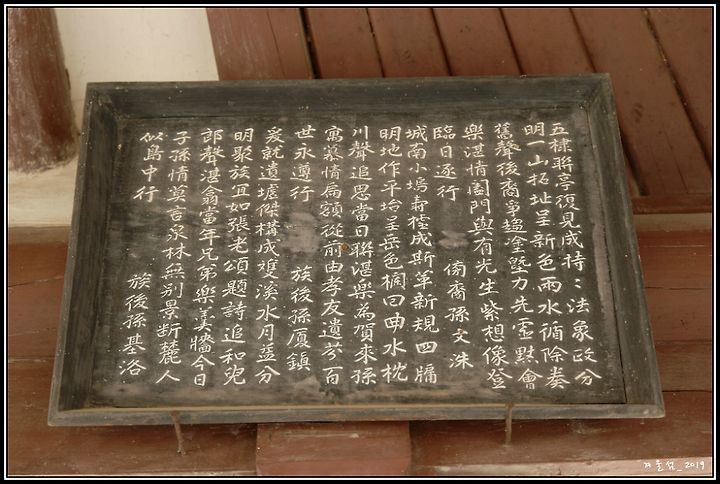 五棣聯亭復見成持〻法象政分
明一山拓址呈新色兩水循除奏
舊聲後裔爭趨塗墍力先靈默會
樂湛情闔門與有光生紫想像登
臨日逐行 傍裔孫文洙
城南小塢壽成斯革新規四牖
明地作平呈岳色欄回曲水枕
川聲追思當日聯湛樂為賀來孫
寓慕情扁額從前由孝友遺芬百
世永遵行 族後孫厦鎮
爰就遺墟傑構成雙溪水月並分
明聚族宜如張老頌題詩追和
郎聲湛翁當年兄弟樂羹牆今日
子孫情莫言泉林無別景斷麓人
似島中行 族後孫基洛
겨울섬_2019